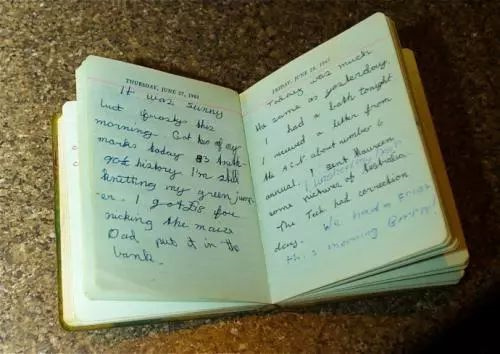 THURSDAY, JUNE 27, 1963
It was sunny
but frosty this
morning. Got two of my
marks today 83
history I'm still
knitting my green jump
-er. I got £8 for
picking the maize
Dad put it in the
bank.
FRIDAY, JUNE 28, 1963
Today was much
the same as yesterday.
I had a bath tonight
I received a letter from
the about number 6
annual. I sent Maureen
some pictures of Australia.
The Tech had correction
day. We had a Frost
this morning Brrrr.